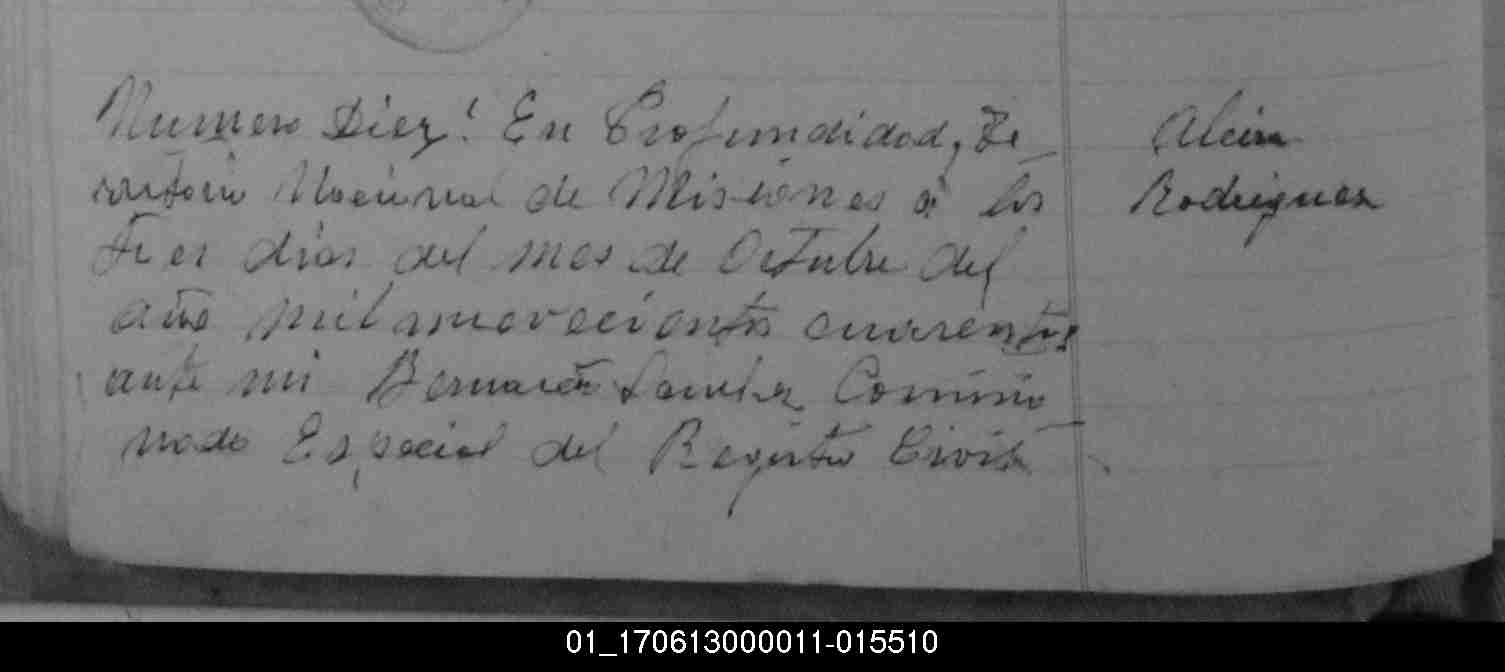 Numero Diez: En Profundidad, Te-
rritorio Nacional de Misiones á los
Tres dias del mes de Octubre del
año mil novecientos cuarenta
ante mi Sanchez Comisio-
nado Especial del Registro Civil
Alcira
Rodriguez
01_170613000011-015510